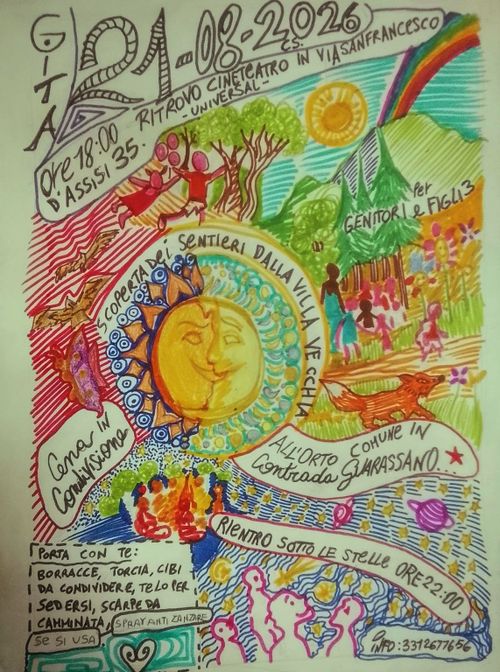 GITA
21-08-2026
CS.
ORE 18:00 RITROVO CINETEATRO IN VIA SAN FRANCESCO
-UNIVERSAL-
D'ASSISI 35.
Per
GENITORI e FIGLI3
SCOPERTA DEI SENTIERI DALLA VILLA VECCHIA
Cena in
Condivisione
ALL'ORTO COMUNE IN
Contrada GUARASSANO...
RIENTRO SOTTO LE STELLE ORE 22:00.
PORTA CON TE:
BORRACCE, TORCIA, CIBI
DA CONDIVIDERE, TELO PER
SEDERSI, SCARPE DA
CAMMINATA, SPRAY ANTI ZANZARE
SE SI USA
INFO: 3312677656